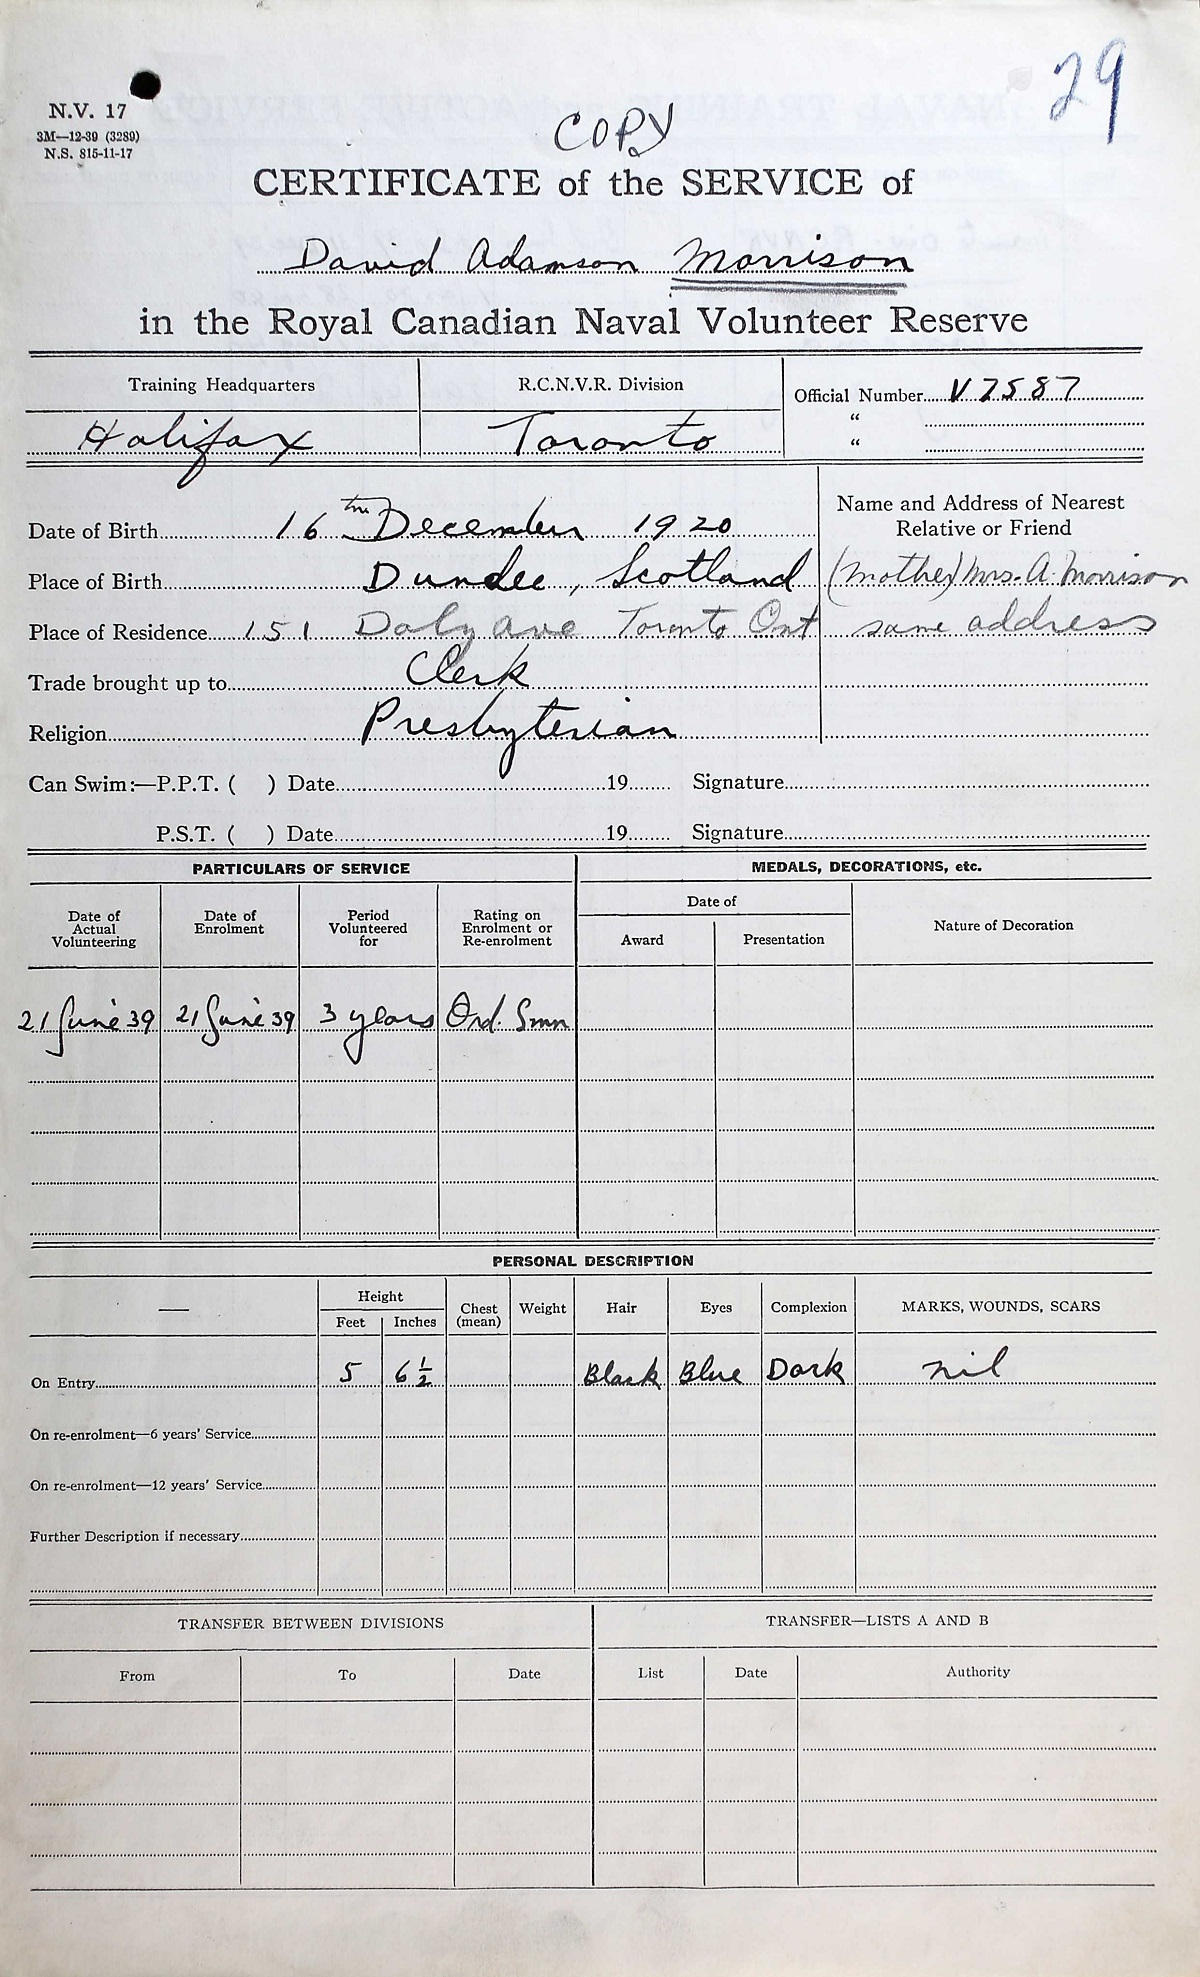 29
N.V. 17
3M—12-39 (3289)
N.S. 815-11-17
COPY
CERTIFICATE of the SERVICE of
David Adamson Morrison
in the Royal Canadian Naval Volunteer Reserve
Training Headquarters R.C.N.V.R. Division Official Number V7587
Halifax Toronto "
"
Name and Address of Nearest
Relative or Friend
Date of Birth 16th December 1920
Place of Birth Dundee, Scotland (Mother) Mrs. A. Morrison
Place of Residence 151 Daly Ave Toronto Ont same address
Trade brought up to Clerk
Religion Presbyterian
Can Swim:—P.P.T. ( ) Date 19 Signature
P.S.T. ( ) Date 19 Signature
PARTICULARS OF SERVICE MEDALS, DECORATIONS, etc.
Date of Actual Volunteering Date of Enrolment Period Volunteered for Rating on Enrolment or Re-enrolment Date of Award Presentation Nature of Decoration
21 June 39 21 June 39 3 years Ord. Smn
PERSONAL DESCRIPTION
— Height Feet Inches Chest (mean) Weight Hair Eyes Complexion MARKS, WOUNDS, SCARS
On Entry 5 6½ Black Blue Dark nil
On re-enrolment—6 years' Service
On re-enrolment—12 years' Service
Further Description if necessary
TRANSFER BETWEEN DIVISIONS TRANSFER—LISTS A AND B
From To Date List Date Authority